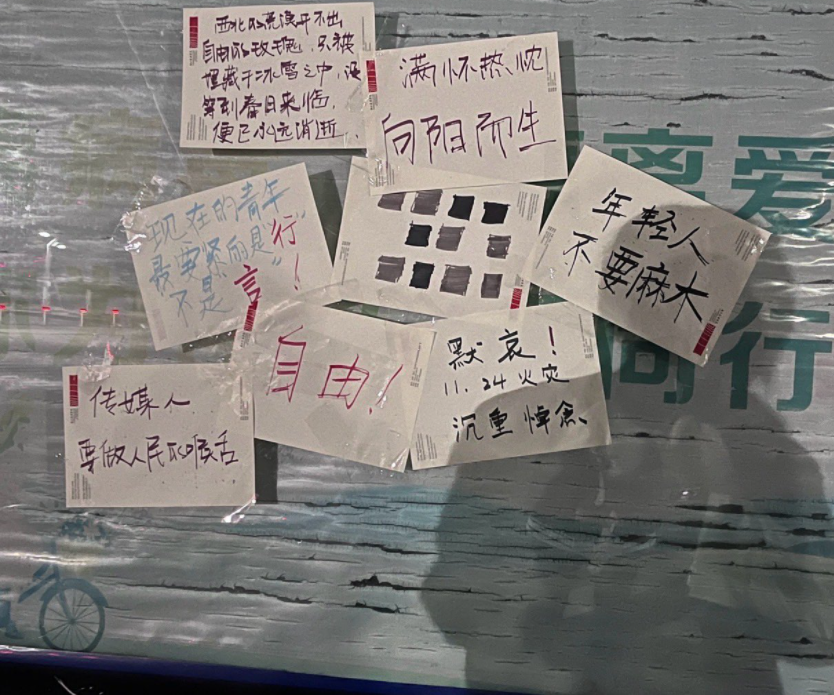 西北的荒漠开不出
自由的玫瑰,只被
埋藏于冰雪之中,没
等到春日来临,
便已永远消逝
满怀热忱
向阳而生
现在的青年
最要紧的是“行”
不是
言!
年轻人
不要麻木
自由!
默哀!
11.24火灾
沉重悼念
传媒人
要做人民的喉舌
离爱
同行